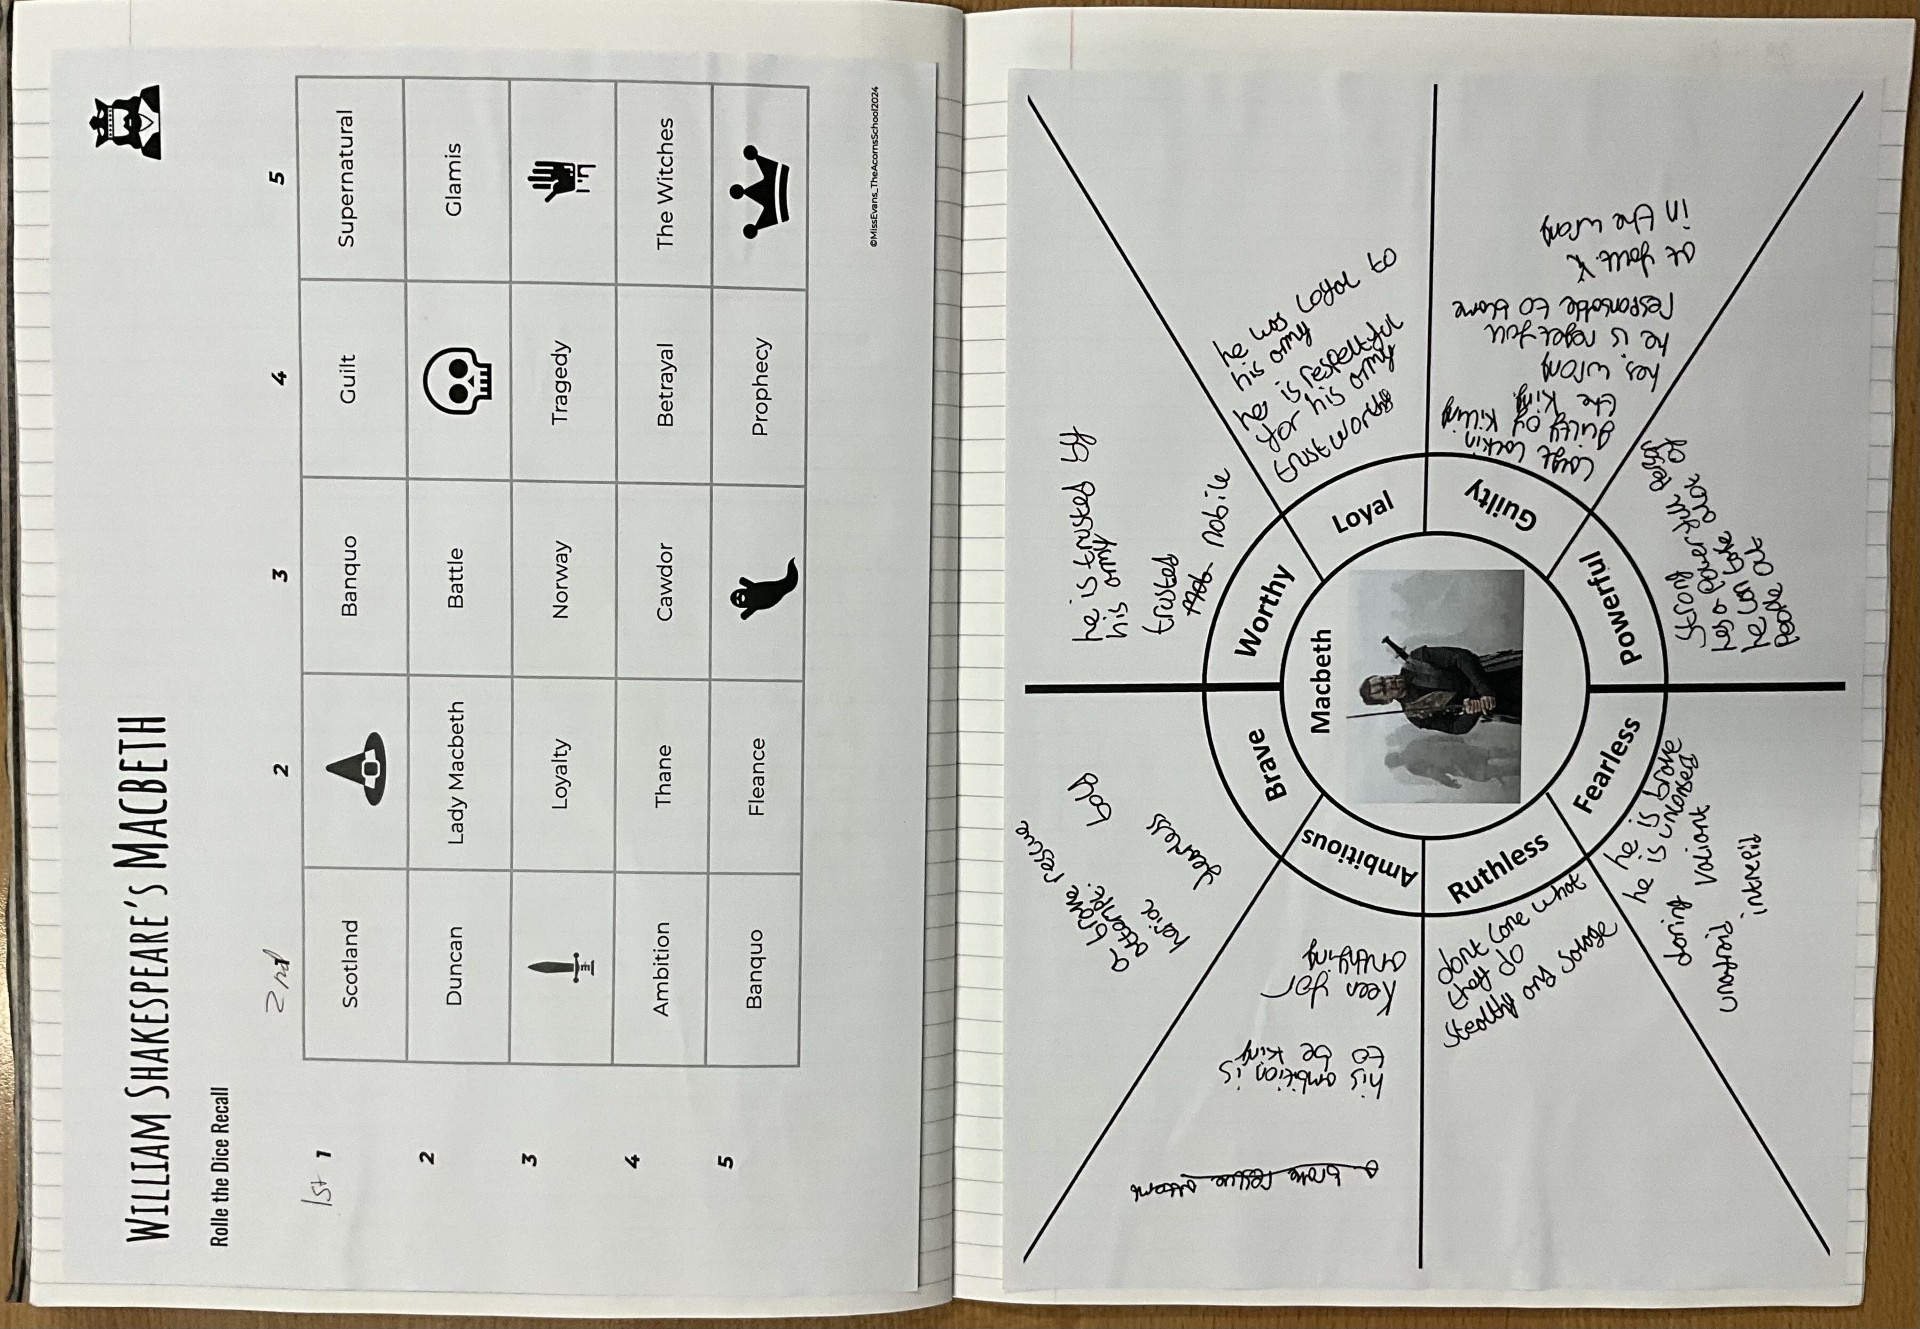 WILLIAM SHAKESPEARE'S MACBETH
Rolle the Dice Recall
2nd
1 2 3 4 5
1st 1
Scotland
Guilt
Banquo
Supernatural
2
Duncan
Lady Macbeth
Battle
Glamis
3
Loyalty
Norway
Tragedy
4
Ambition
Thane
Cawdor
Betrayal
The Witches
5
Banquo
Fleance
Prophecy
©MissEvans_TheAcornsSchool2024
Macbeth
Brave
a brave rescue
attempt.
bold
heriot
fearless
Worthy
he is trusted by
his army
trusted
nobile
Loyal
he was loyal to
his army
he is respectful
for his army
trustworthy
Guilty
guilty of killing
the king.
hes wrong
he is
responsable to blame
at fault
in the wrong
Powerful
strong
has a power full
he can take
people out
Fearless
he is brave
he is
daring valiant
unafraid intrepid
Ruthless
dont care what
they do
stealthy and savage
Ambitious
keen for
anything
his ambition is
to be king
a brave rescue